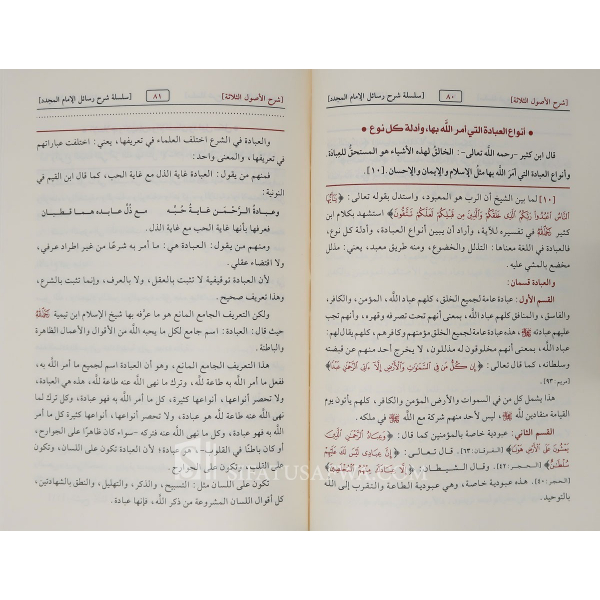 [شرح الأصول الثلاثة] ٨٠ [سلسلة شرح رسائل الإمام المجدد]
• أنواع العبادة التي أمر الله بها، وأدلة كل نوع •
قال ابن كثير -رحمه الله تعالى-: الخالق لهذه الأشياء هو المستحق للعبادة.
وأنواع العبادة التي أمَرَ الله بها مثلُ الإسلام والإيمان والإحسان. [١٠].
[١٠] لما بين الشيخ أن الرب هو المعبود، واستدل بقوله تعالى: ﴿يَٰٓأَيُّهَا
ٱلنَّاسُ ٱعْبُدُوا۟ رَبَّكُمُ ٱلَّذِى خَلَقَكُمْ وَٱلَّذِينَ مِن قَبْلِكُمْ لَعَلَّكُمْ تَتَّقُونَ﴾ استشهد بكلام ابن
كثير رَحِمَهُ ٱللَّهُ في تفسيره للآية، وأراد أن يبين أنواع العبادة، وأدلة كل نوع،
فالعبادة في اللغة معناها: التذلل والخضوع، ومنه طريق معبد، يعني: مذلل
مخضع بالمشي عليه.
والعبادة قسمان:
القسم الأول: عبادة عامة لجميع الخلق، كلهم عباد الله، المؤمن، والكافر،
والفاسق، والمنافق كلهم عباد الله، بمعنى أنهم تحت تصرفه وقهره، وأنهم تجب
عليهم عبادته ﷻ، هذه عبادة عامة لجميع الخلق مؤمنهم وكافرهم، كلهم يقال لهم:
عباد الله، بمعنى أنهم مخلوقون له مذللون، لا يخرج أحد منهم عن قبضته
وسلطانه، كما قال تعالى: ﴿إِن كُلُّ مَن فِى ٱلسَّمَٰوَٰتِ وَٱلْأَرْضِ إِلَّآ ءَاتِى ٱلرَّحْمَٰنِ عَبْدًا﴾
[مريم: ٩٣].
هذا يشمل كل من في السموات والأرض المؤمن والكافر، كلهم يأتون يوم
القيامة منقادين لله ﷻ، ليس لأحد منهم شركة مع الله ﷻ في ملكه.
القسم الثاني: عبودية خاصة بالمؤمنين كما قال: ﴿وَعِبَادُ ٱلرَّحْمَٰنِ ٱلَّذِينَ
يَمْشُونَ عَلَى ٱلْأَرْضِ هَوْنًا﴾ [الفرقان: ٦٣]. قال تعالى: ﴿إِنَّ عِبَادِى لَيْسَ لَكَ عَلَيْهِمْ
سُلْطَٰنٌ﴾ [الحجر: ٤٢]. وقال الشيطان: ﴿إِلَّا عِبَادَكَ مِنْهُمُ ٱلْمُخْلَصِينَ﴾
[الحجر: ٤٠]. هذه عبودية خاصة، وهي عبودية الطاعة والتقرب إلى الله
بالتوحيد.
[شرح الأصول الثلاثة] ٨١ [سلسلة شرح رسائل الإمام المجدد]
والعبادة في الشرع اختلف العلماء في تعريفها، يعني: اختلفت عباراتهم
في تعريفها، والمعنى واحد:
فمنهم من يقول: العبادة غاية الذل مع غاية الحب، كما قال ابن القيم في
النونية:
وعبادةُ الرَّحْمَنِ غايةُ حُبِّهِ مع ذُلِّ عابدِه هما قطبانِ
فعرفها بأنها غاية الحب مع غاية الذل.
ومنهم من يقول: العبادة هي: ما أمر به شرعًا من غير اطراد عرفي،
ولا اقتضاء عقلي.
لأن العبادة توقيفية لا تثبت بالعقل، ولا بالعرف، وإنما تثبت بالشرع،
وهذا تعريف صحيح.
ولكن التعريف الجامع المانع هو ما عرَّفه بها شيخ الإسلام ابن تيمية رَحِمَهُ ٱللَّهُ
حيث قال: العبادة: اسم جامع لكل ما يحبه الله من الأقوال والأعمال الظاهرة
والباطنة.
هذا التعريف الجامع المانع، وهو أن العبادة اسم لجميع ما أمر الله به،
ففعل ما أمر الله به طاعة لله، وترك ما نهى الله عنه طاعة لله، هذه هي العبادة،
ولا تحصر أنواعها، أنواعها كثيرة، كل ما أمر الله به فهو عبادة، وكل ترك لما
نهى الله عنه طاعة لله هو عبادة، ولا تحصر أنواعها، أنواعها كثيرة كل ما أمر
الله به فهو عبادة، وكل ما نهى الله عنه فتركه -سواء كان ظاهرًا على الجوارح،
أو كان باطنًا في القلوب- عبادة؛ لأن العبادة تكون على اللسان، وتكون
على القلب، وتكون على الجوارح.
تكون على اللسان مثل: التسبيح، والذكر، والتهليل، والنطق بالشهادتين،
كل أقوال اللسان المشروعة من ذكر الله، فإنها عبادة.
SIFATUSAFWA.COM